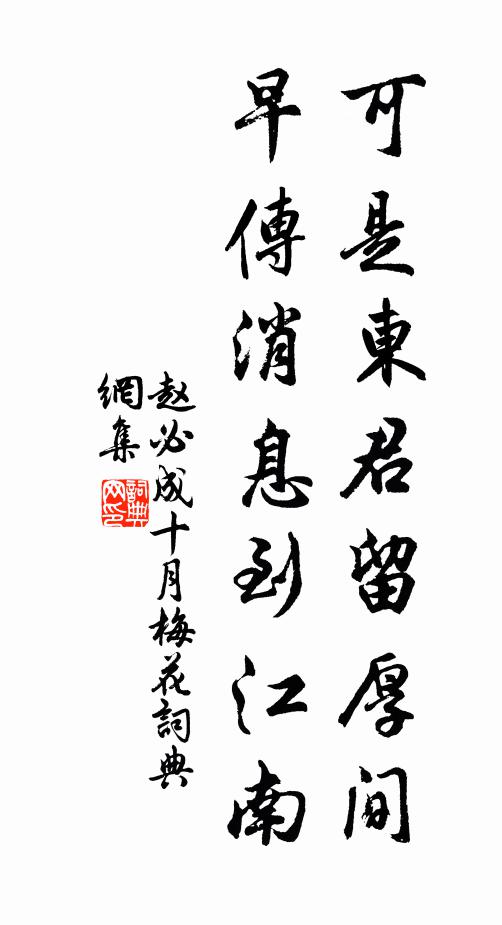 可是東君留厚间
早傳消息到江南
赵必成十月梅花詞典
網集
詞典
网印